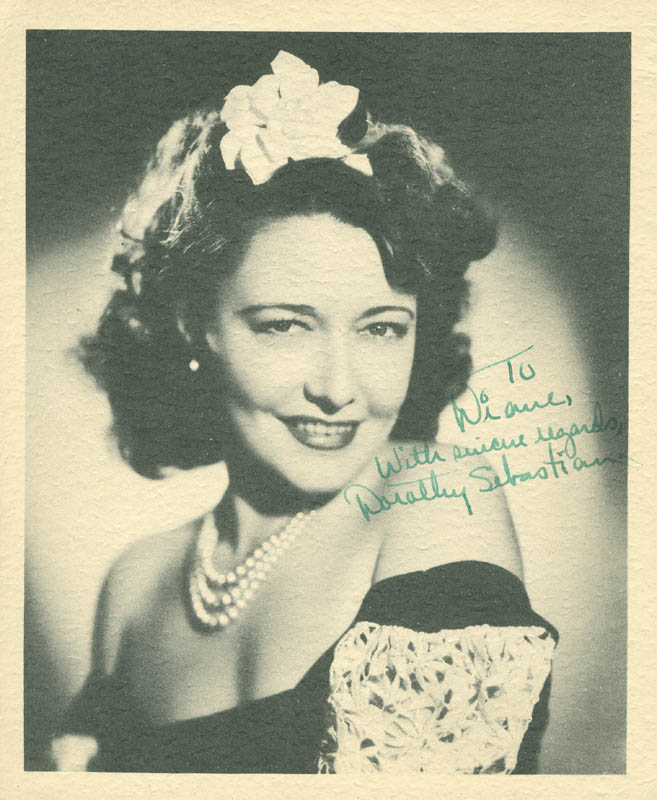 To
Diane,
With sincere regards,
Dorothy Sebastian